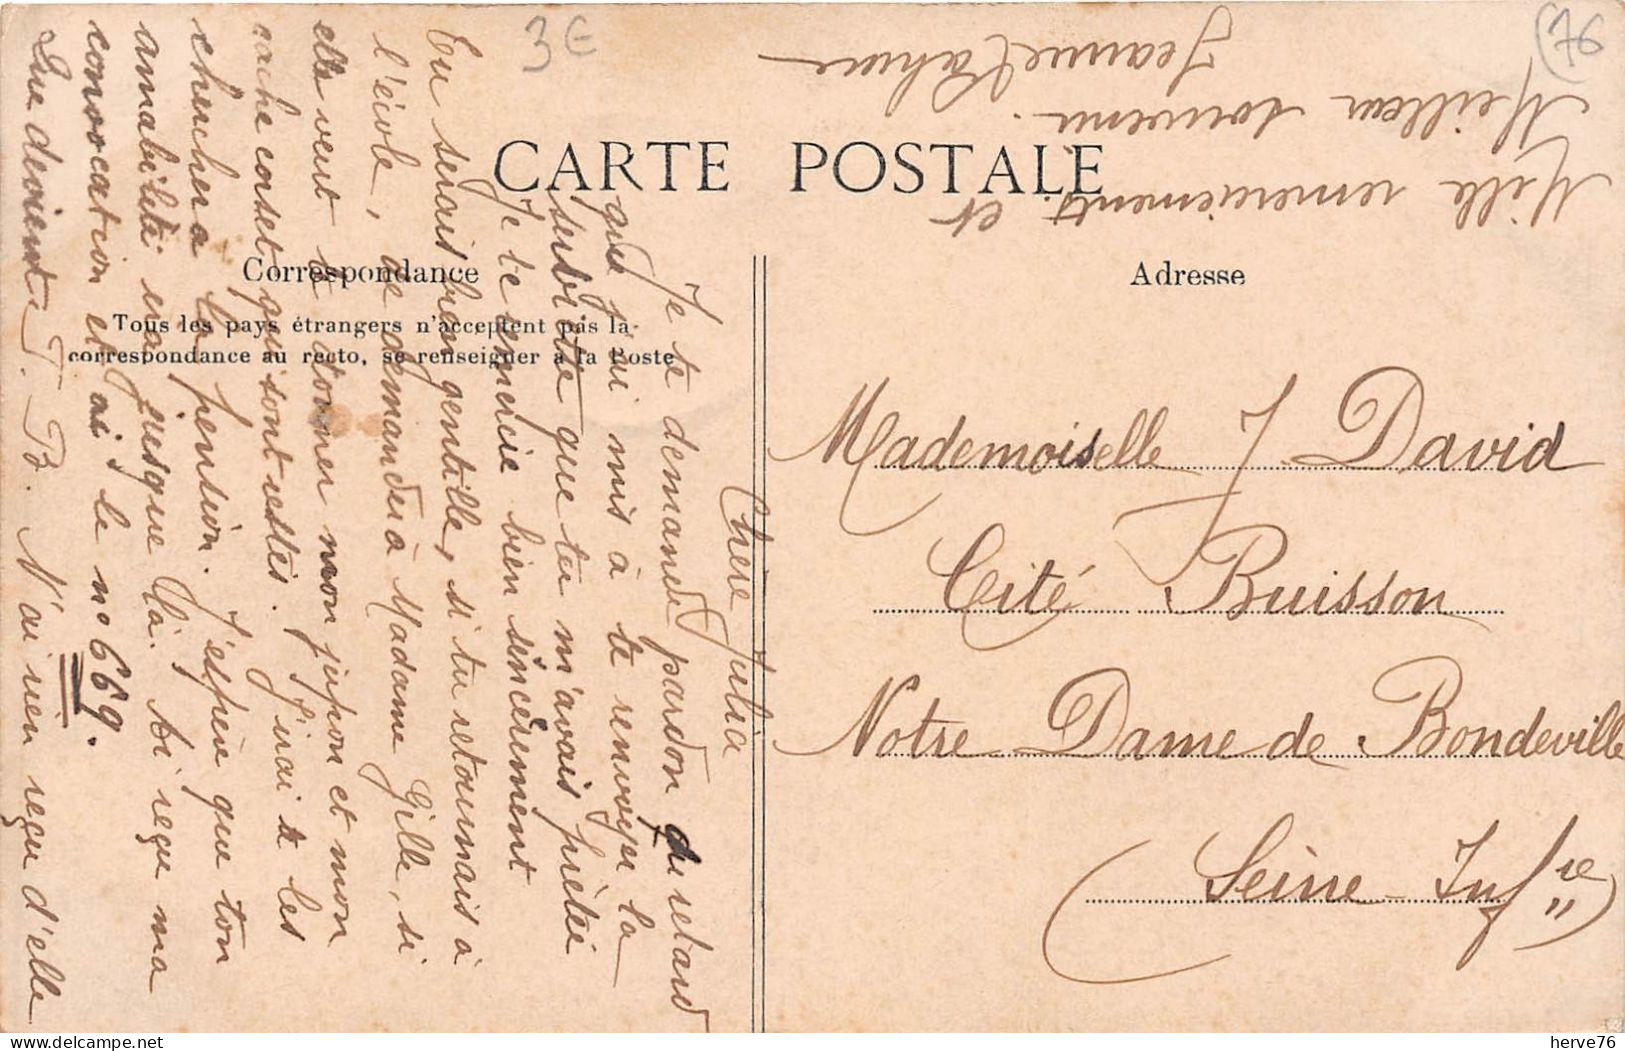 3€
(76
CARTE POSTALE
Correspondance
Tous les pays étrangers n'acceptent pas la
correspondance au recto, se renseigner à la Poste
Adresse
Mademoiselle J David
Cité Buisson
Notre Dame de Bondeville
Seine-Infre
Chère Julia
Je te demande pardon du retard
que j'ai mis à te renvoyer la
serviette que tu m'avais prêtée
Je te remercie bien sincèrement
Tu serais bien gentille, si tu retournais à
l'école, de demander à Madame Gille, si
elle veut te donner mon jupon et mon
cache corset qui sont restés. J'irai te les
chercher à la pension. J'espère que ton
amabilité ira jusque là. Ai reçu ma
convocation et ai le n° 669.
Que devient T. B. N'ai rien reçu d'elle
Mille remerciements et
Meilleur souvenir.
Jeanne
herve76